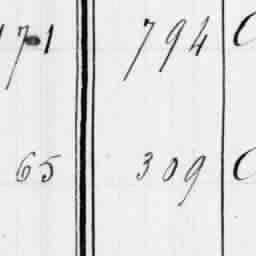 171 794
65 309